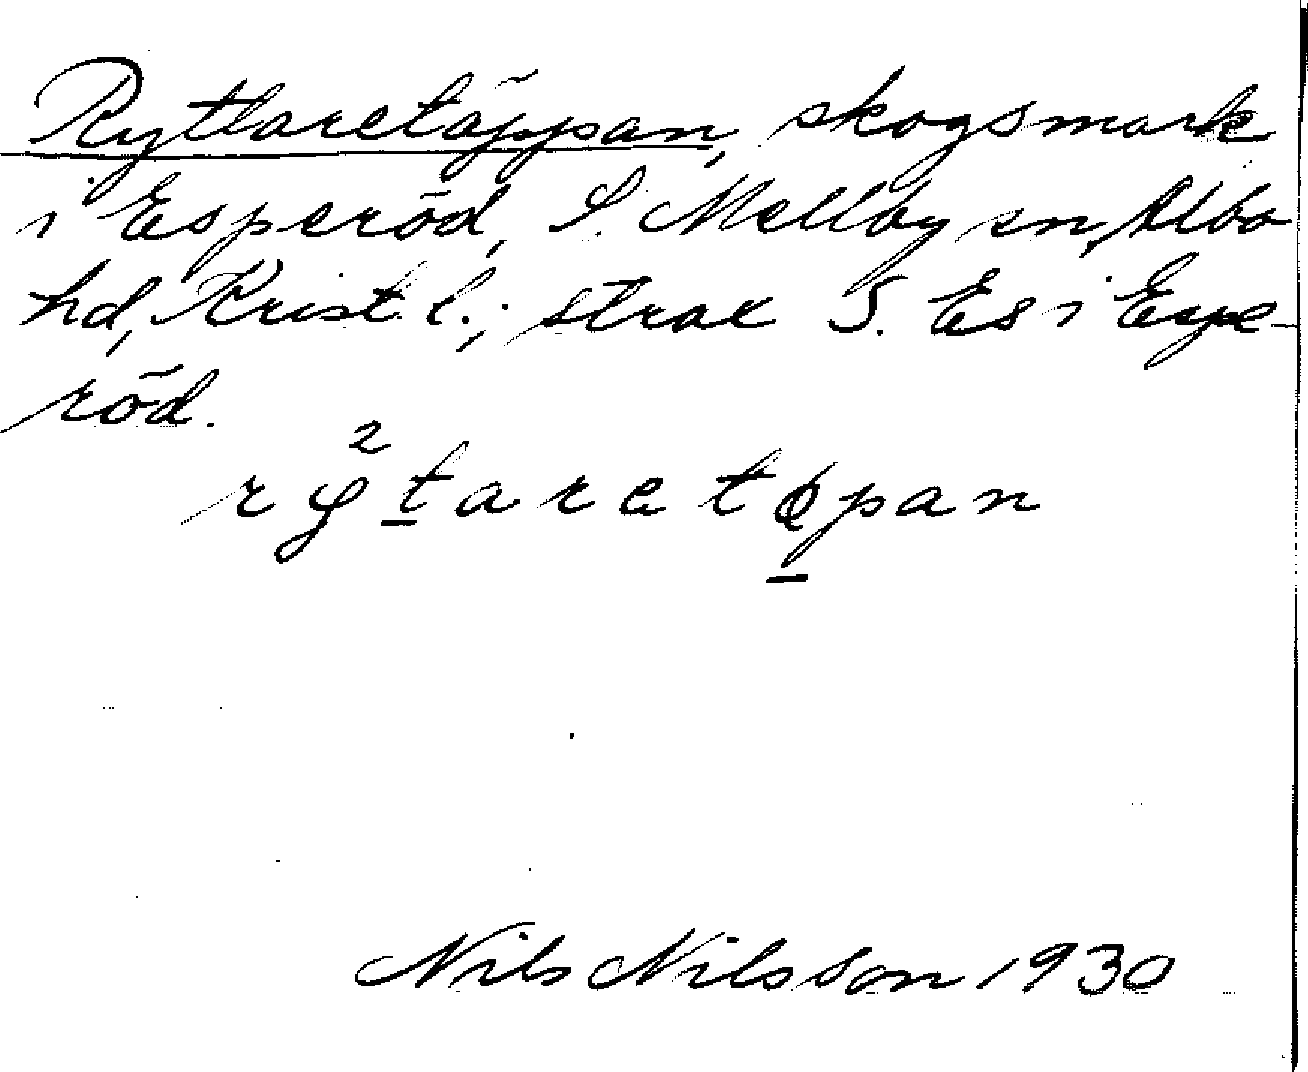 Ryttaretäppan, skogsmark
i Esperöd, S. Mellby sn, Albo
hd, Krist. l.; strax S. Es i Espe-
röd.
Nils Nilsson 1930